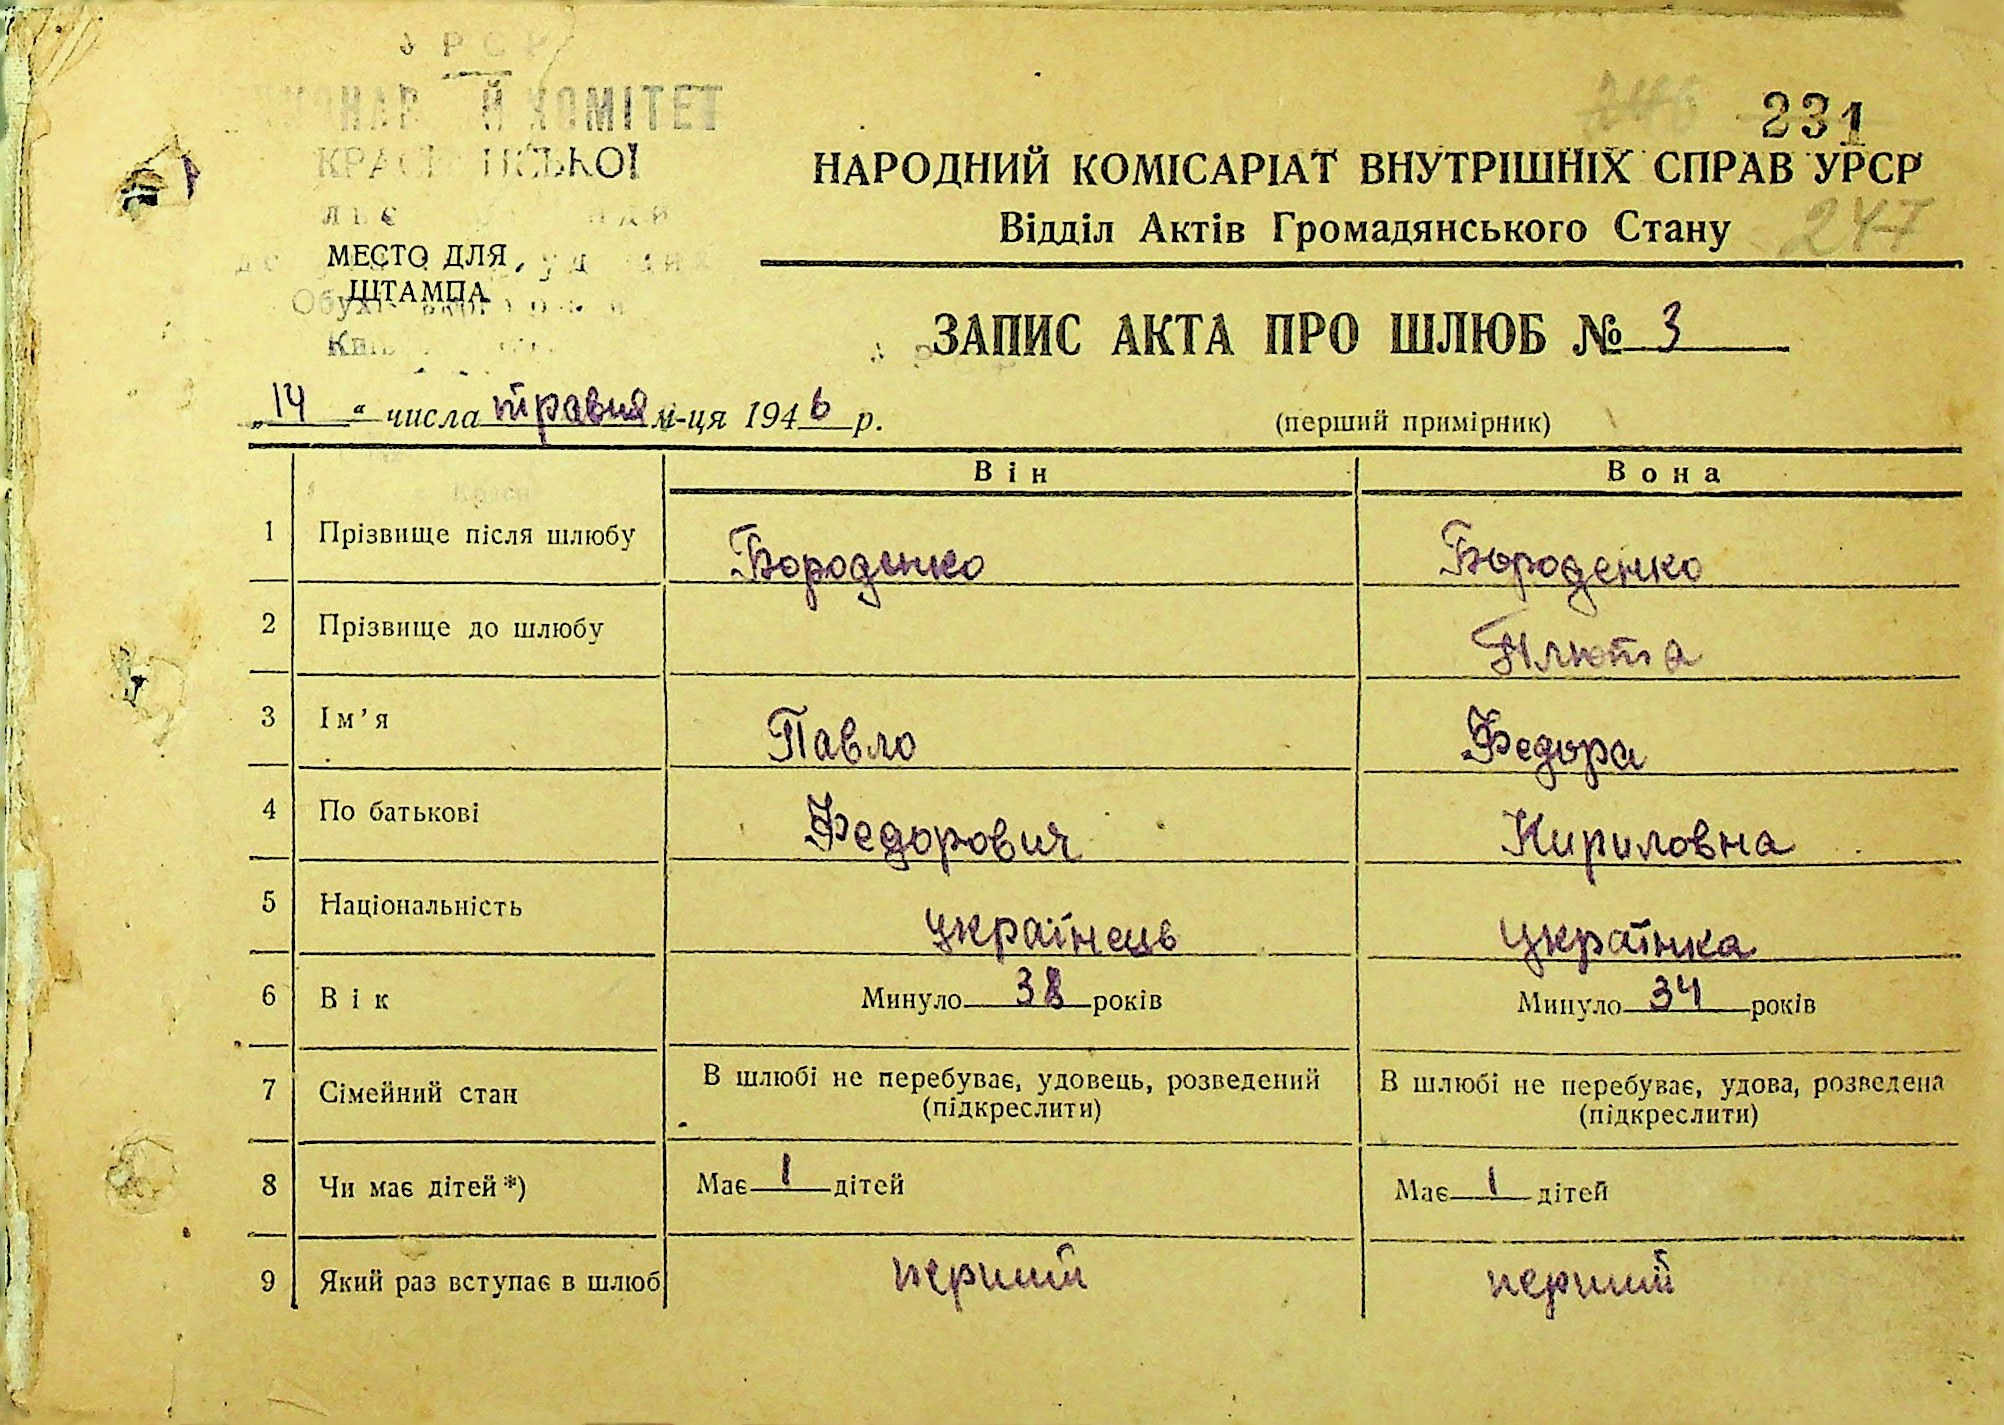 УРСР
Й КОМІТЕТ
231
НАРОДНИЙ КОМІСАРІАТ ВНУТРІШНІХ СПРАВ УРСР
Відділ Актів Громадянського Стану
247
МЕСТО ДЛЯ
ШТАМПА
ЗАПИС АКТА ПРО ШЛЮБ № 3
„14“ числа травня м-ця 1946 р.
(перший примірник)
Він Вона
1 Прізвище після шлюбу Бороденко Бороденко
2 Прізвище до шлюбу Плюта
3 Ім’я Павло Федора
4 По батькові Федорович Кириловна
5 Національність українець українка
6 Вік Минуло 38 років Минуло 34 років
7 Сімейний стан В шлюбі не перебуває, удовець, розведений В шлюбі не перебуває, удова, розведена
(підкреслити) (підкреслити)
8 Чи має дітей*) Має 1 дітей Має 1 дітей
9 Який раз вступає в шлюб перший перший